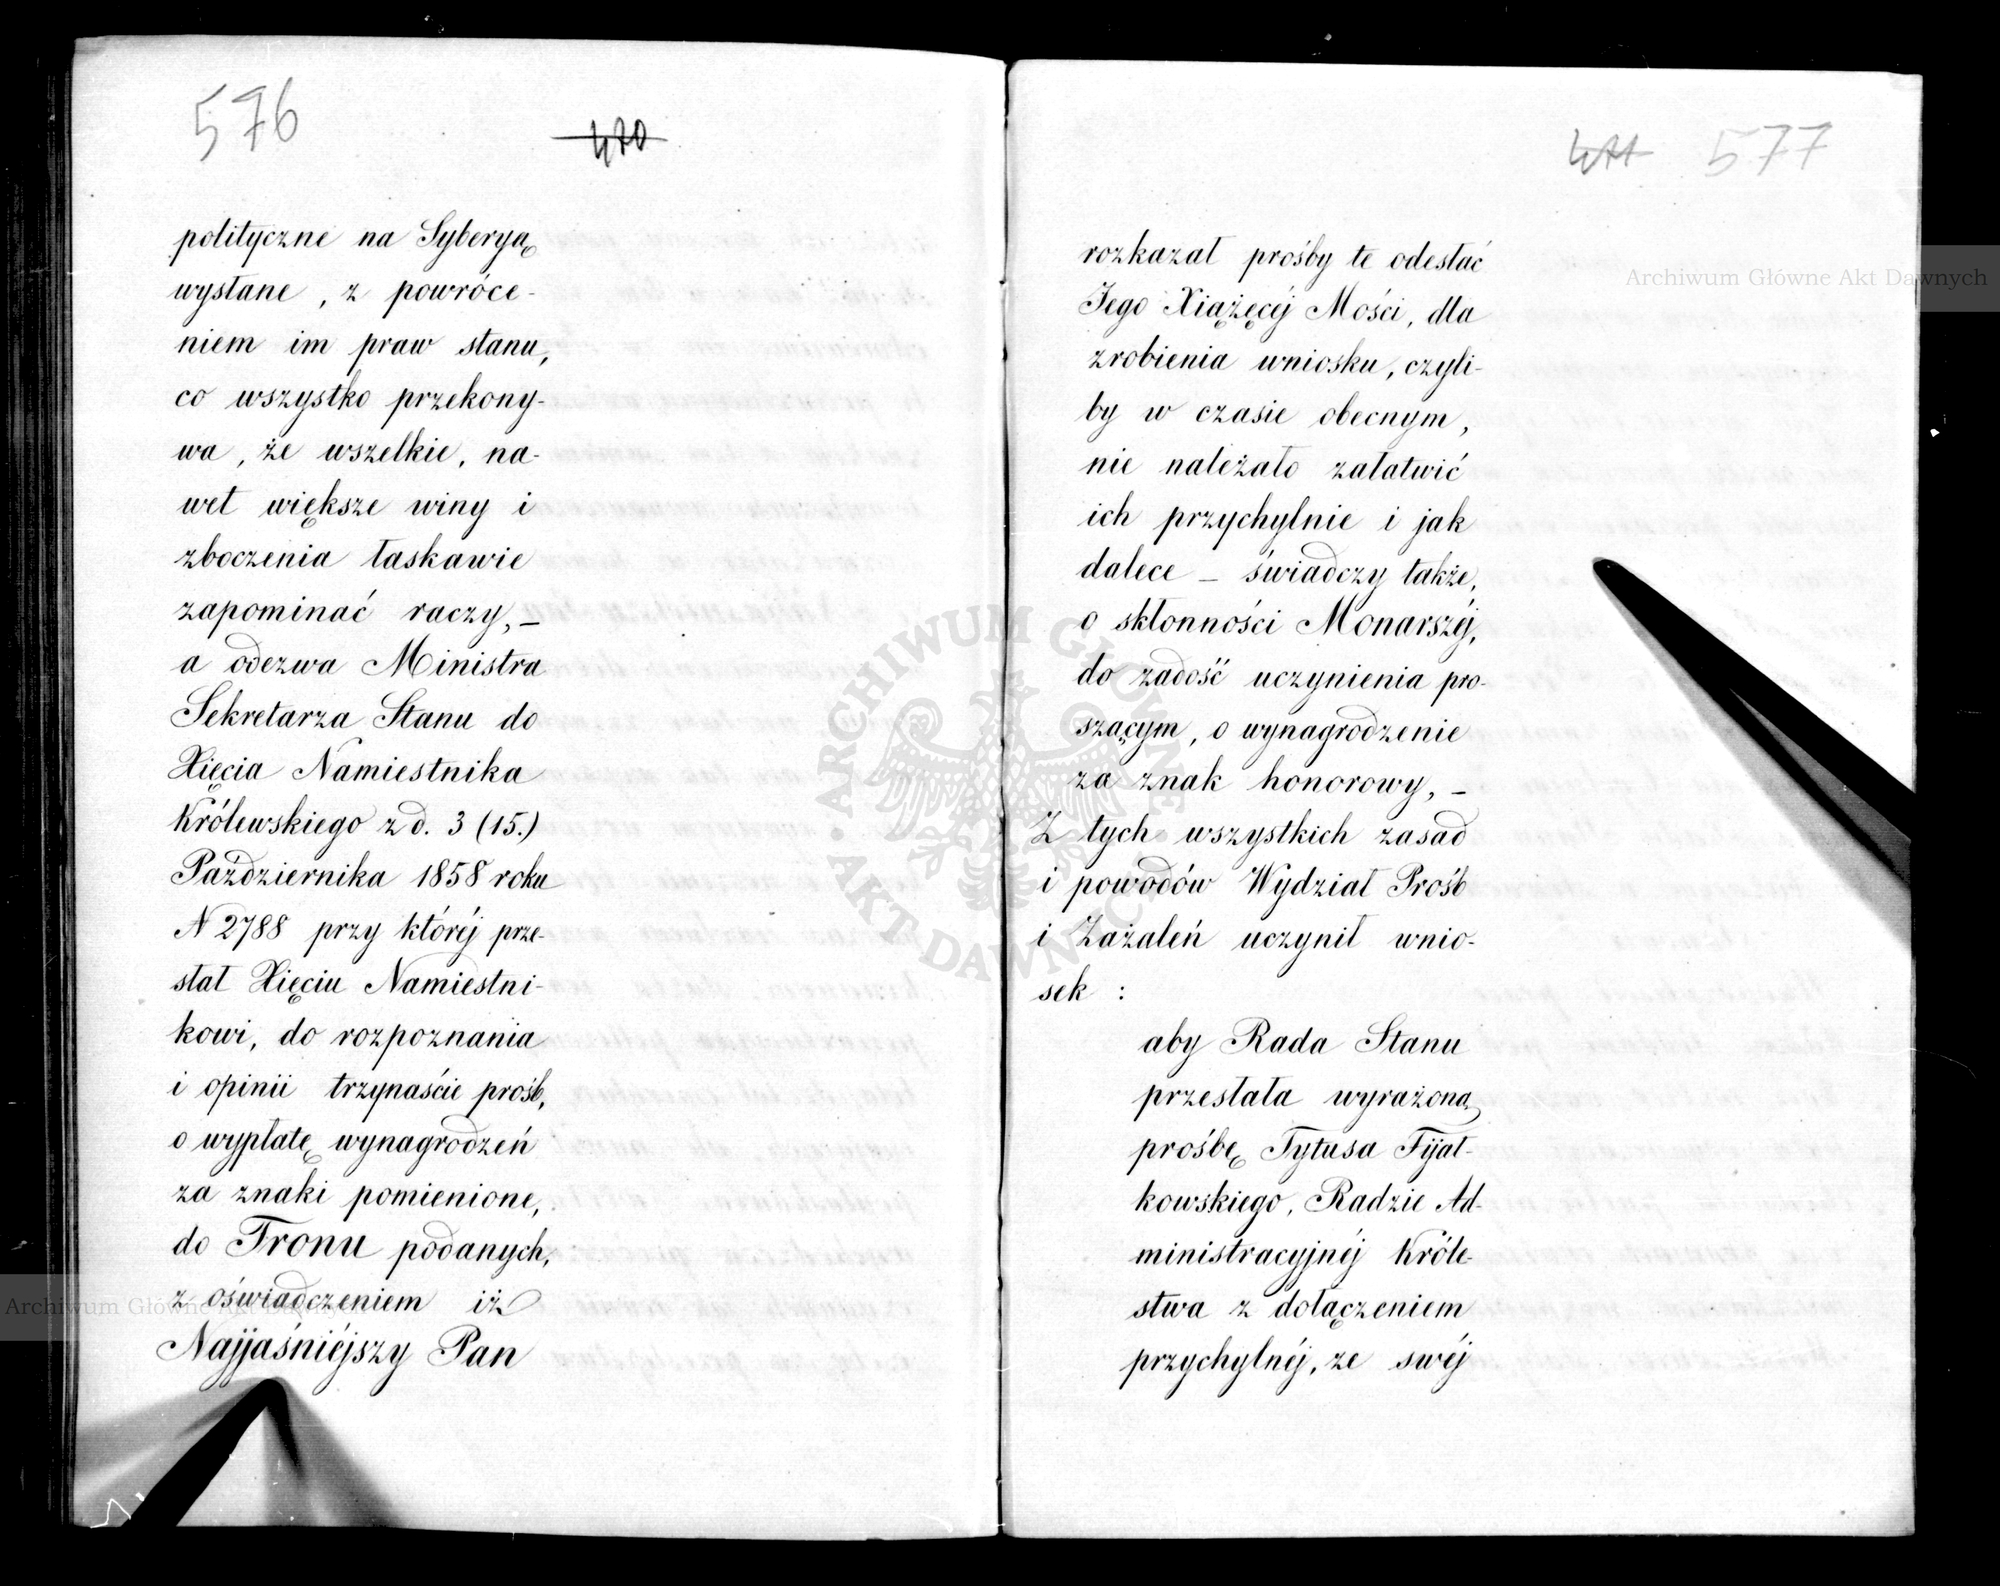 576
470
polityczne na Syberyą
wysłane, z powróce-
niem im praw stanu,
co wszystko przekony-
wa, że wszelkie, na-
wet większe winy i
zboczenia łaskawie
zapominać raczy, –
a odezwa Ministra
Sekretarza Stanu do
Xięcia Namiestnika
Królewskiego z d. 3 (15.)
Października 1858 roku
N 2788 przy któréj prze-
słał Xięciu Namiestni-
kowi, do rozpoznania
i opinii trzynaście prośb,
o wypłatę wynagrodzeń
za znaki pomienione,
do Tronu podanych,
z oświadczeniem iż
Najjaśniéjszy Pan
471 577
rozkazał prośby te odesłać
Jego Xiążęcéj Mości, dla
zrobienia wniosku, czyli-
by w czasie obecnym,
nie należało załatwić
ich przychylnie i jak
dalece – świadczy także,
o skłonności Monarszéj,
do zadość uczynienia pro-
szącym, o wynagrodzenie
za znak honorowy, –
Z tych wszystkich zasad
i powodów Wydział Prośb
i Zażaleń uczynił wnio-
sek :
aby Rada Stanu
przesłała wyrażoną
prośbę Tytusa Fijał-
kowskiego, Radzie Ad-
ministracyjnéj Króle-
stwa z dołączeniem
przychylnéj, ze swéj
Archiwum Główne Akt Dawnych
Archiwum Główne Akt Dawnych
ARCHIWUM GŁÓWNE AKT DAWNYCH